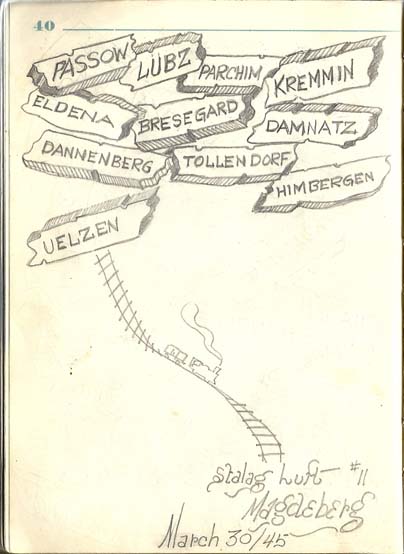 40
PASSOW LUBZ PARCHIM KREMMIN
ELDENA BRESEGARD DAMNATZ
DANNENBERG TOLLENDORF HIMBERGEN
UELZEN
Stalag Luft #11
Magdeberg
March 30/45